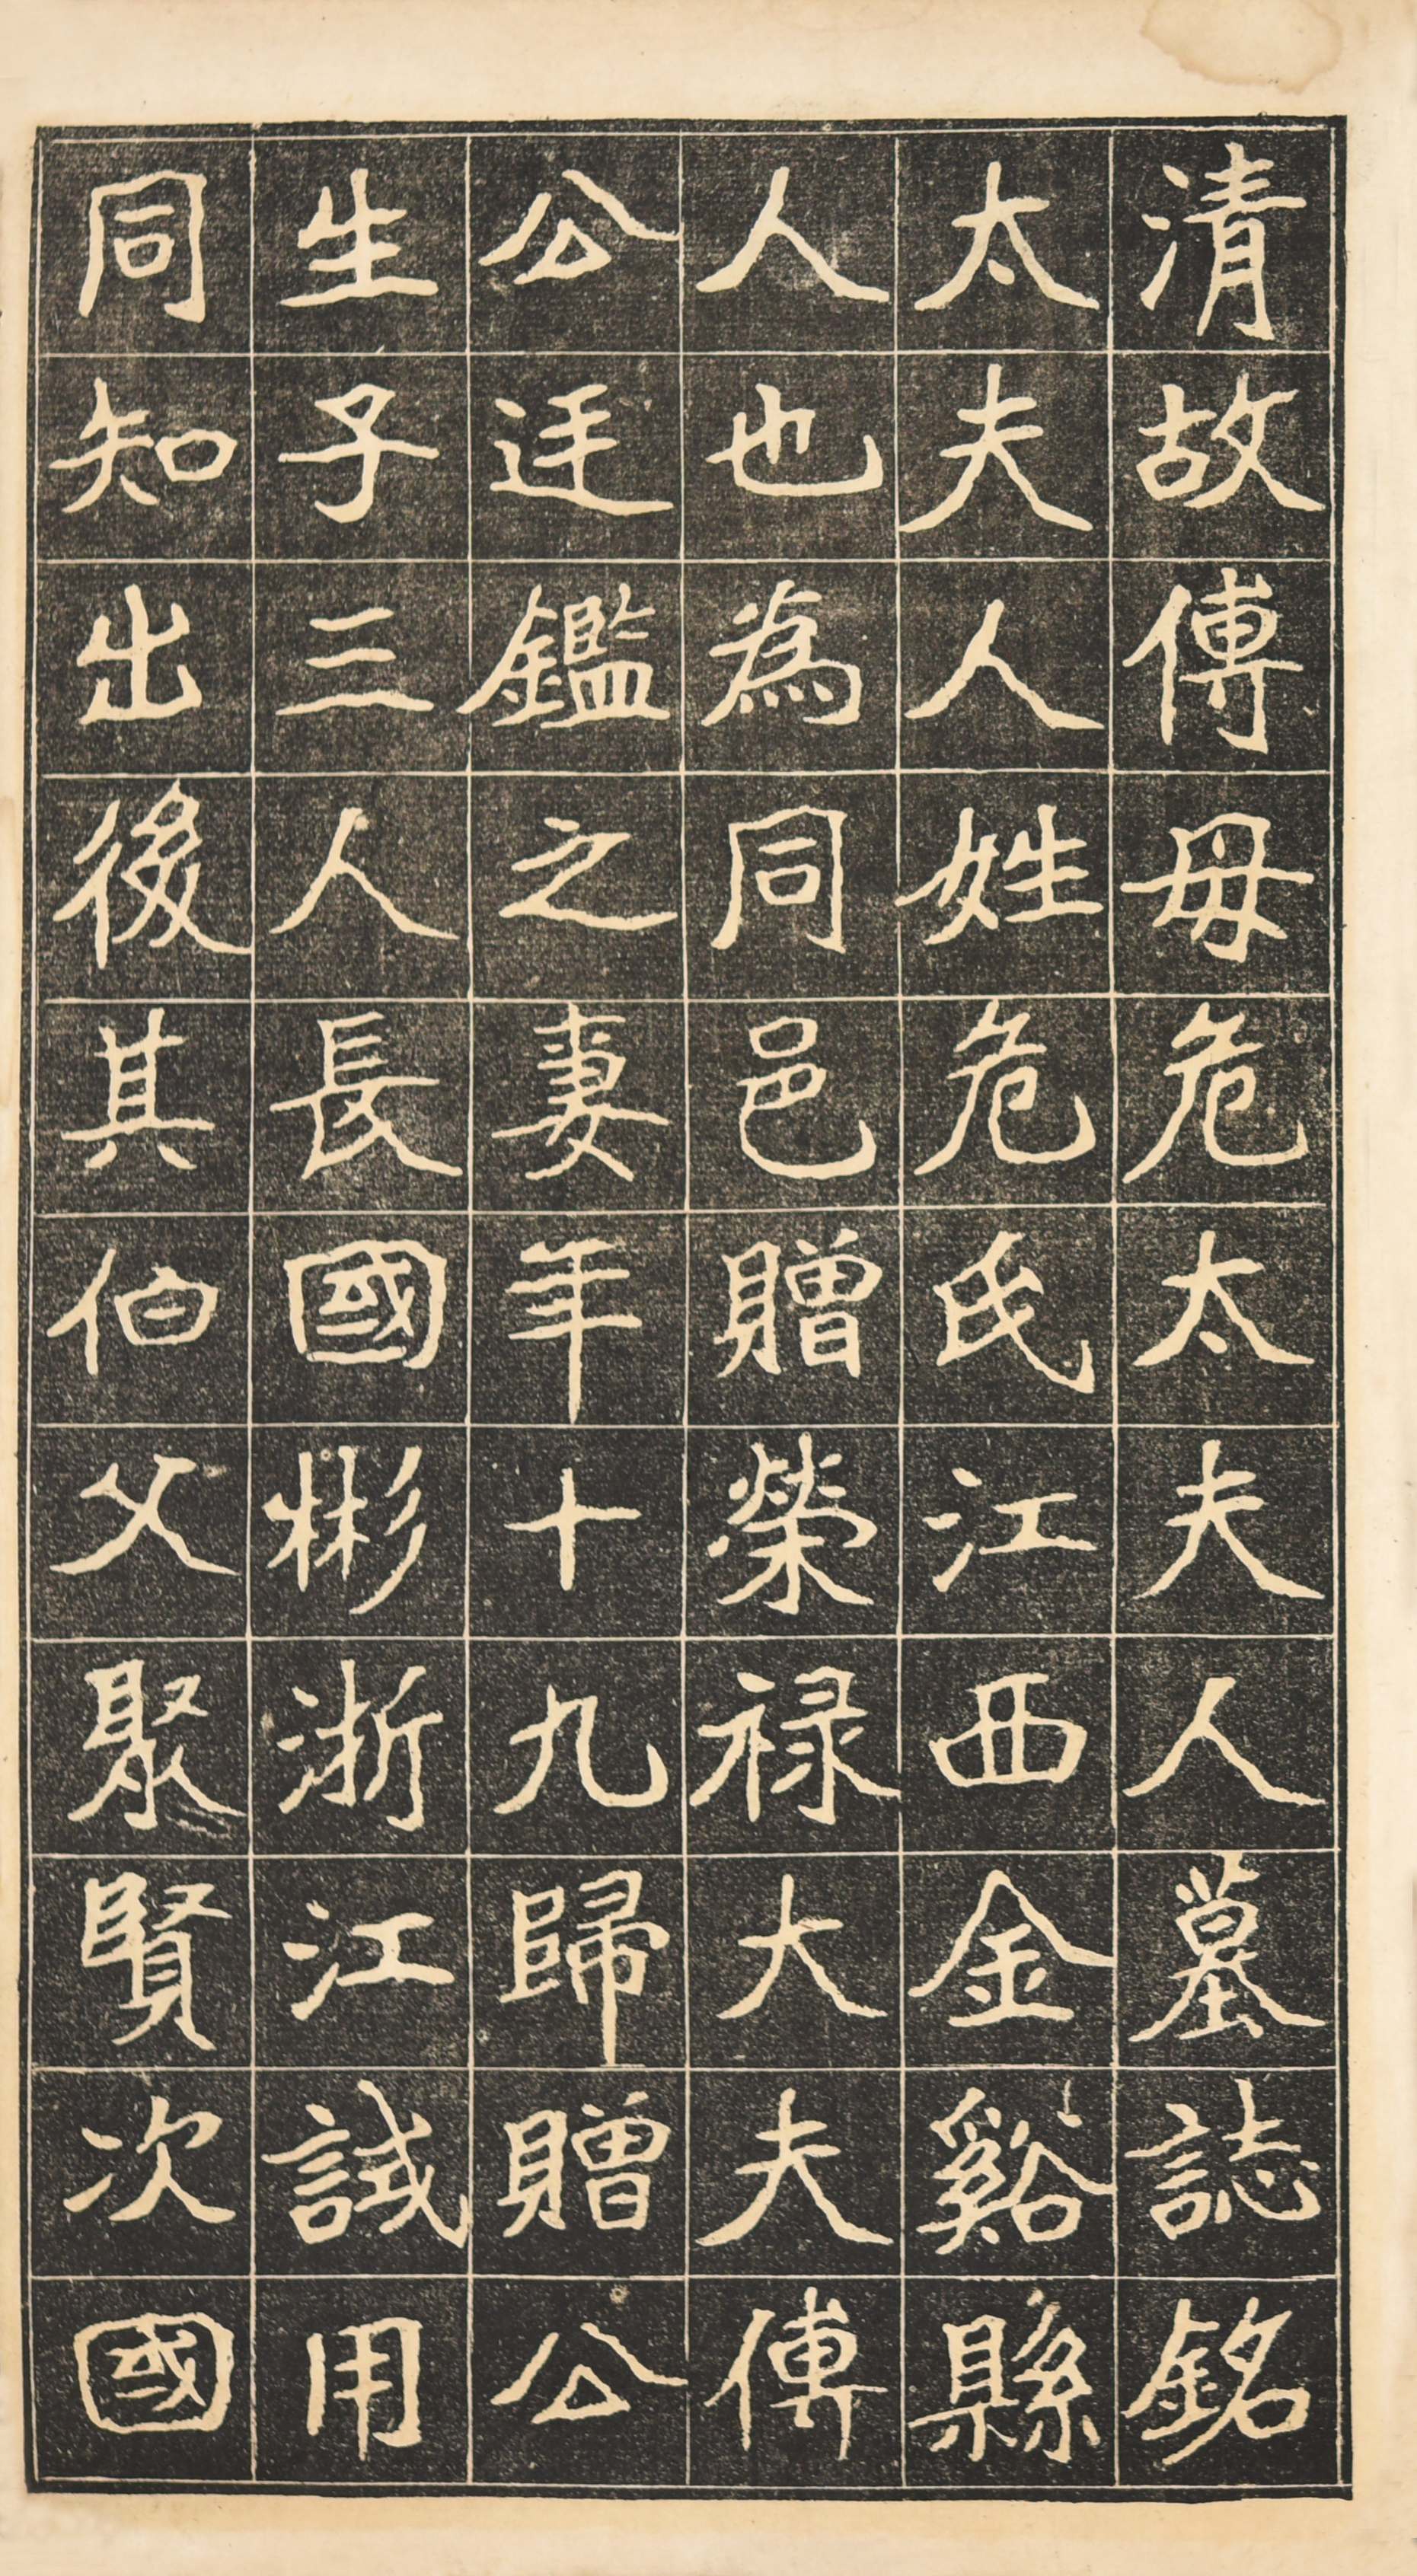 清故傅母危太夫人墓誌銘
太夫人姓危氏江西金谿縣
人也為同邑贈榮禄大夫傅
公廷鑑之妻年十九歸贈公
生子三人長國彬浙江試用
同知出後其伯父聚賢次國